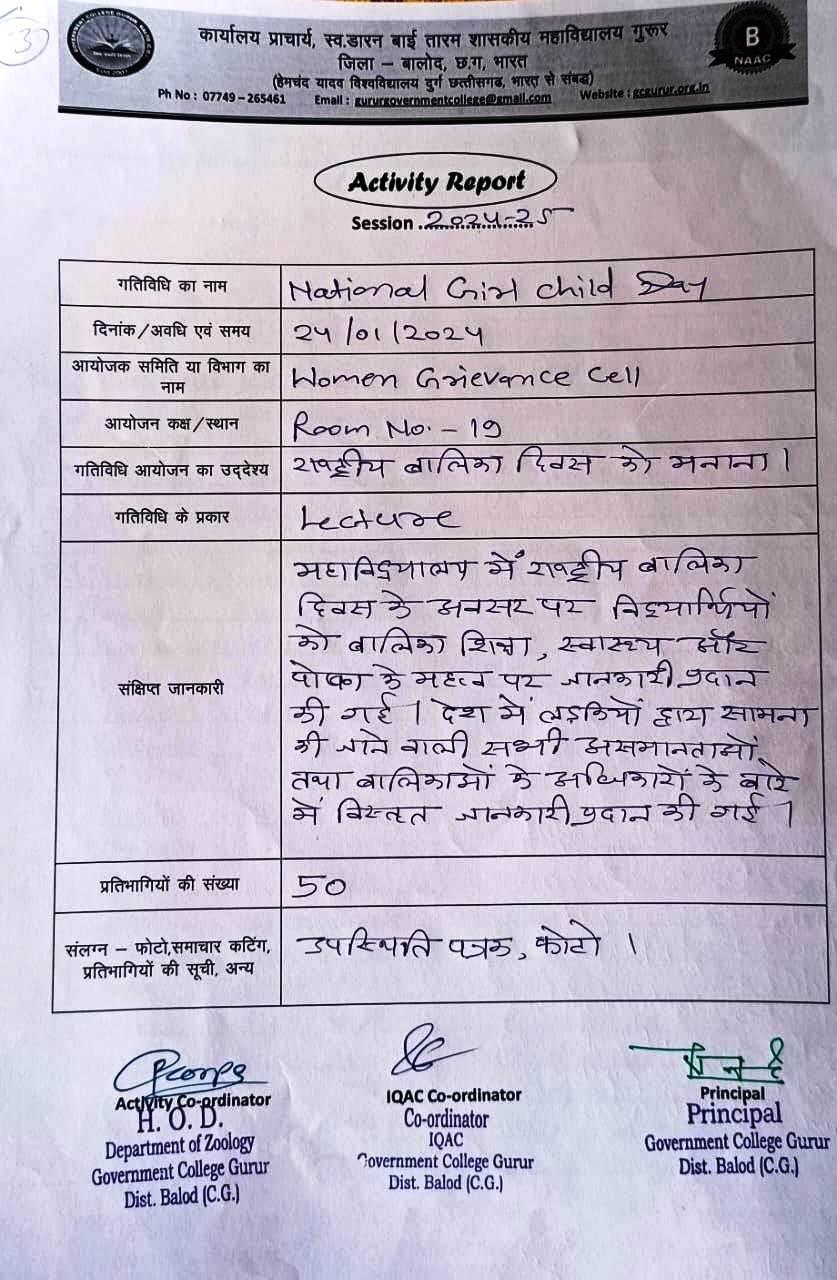 3
कार्यालय प्राचार्य, स्व.डारन बाई तारम शासकीय महाविद्यालय गुरूर
जिला – बालोद, छ.ग, भारत
(हेमचंद यादव विश्वविद्यालय दुर्ग छत्तीसगढ, भारत से संबद्ध)
Ph No : 07749 – 265461 Email : gururgovernmentcollege@gmail.com Website : gcgurur.org.in
B
NAAC
Activity Report
Session 2024-25
गतिविधि का नाम National Girl Child Day
दिनांक/अवधि एवं समय 24/01/2024
आयोजक समिति या विभाग का
नाम
Women Grievance Cell
आयोजन कक्ष/स्थान Room No. - 19
गतिविधि आयोजन का उद्देश्य राष्ट्रीय बालिका दिवस को मनाना।
गतिविधि के प्रकार Lecture
संक्षिप्त जानकारी
महाविद्यालय में राष्ट्रीय बालिका
दिवस के अवसर पर विद्यार्थियों
को बालिका शिक्षा, स्वास्थ्य और
पोषण के महत्व पर जानकारी प्रदान
की गई। देश में लड़कियों द्वारा सामना
की जाने वाली सभी असमानताओं
तथा बालिकाओं के अधिकारों के बारे
में विस्तृत जानकारी प्रदान की गई।
प्रतिभागियों की संख्या 50
संलग्न – फोटो,समाचार कटिंग,
प्रतिभागियों की सूची, अन्य
उपस्थिति पत्रक, फोटो।
Activity Co-ordinator
H. O. D.
Department of Zoology
Government College Gurur
Dist. Balod (C.G.)
IQAC Co-ordinator
Co-ordinator
IQAC
Government College Gurur
Dist. Balod (C.G.)
Principal
Principal
Government College Gurur
Dist. Balod (C.G.)